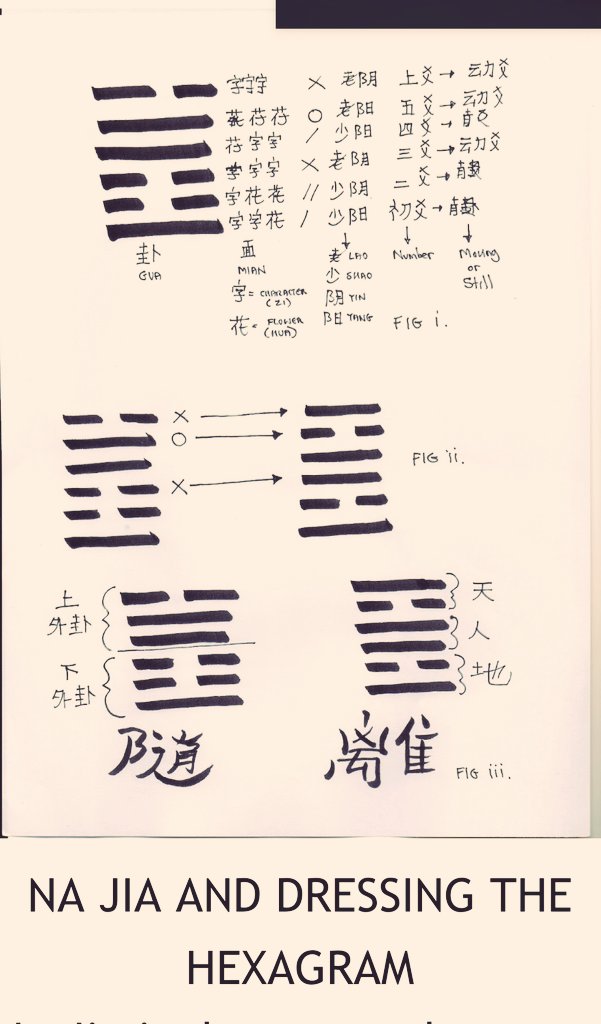 字字字 × 老阴 上爻 → 动爻
花花花 ○ 老阳 五爻 → 动爻
花字字 / 少阳 四爻 →
字字字 × 老阴 三爻 → 动爻
字花花 // 少阴 二爻 →
字字花 / 少阳 初爻 →
卦 面 老 LAO Number Moving
GUA MIAN 少 SHAO or
字 = CHARACTER (ZI) 阴 YIN Still
花 = FLOWER (HUA) 阳 YANG FIG i.
× →
○ →
FIG ii.
× →
上 天
外卦 人
下 地
外卦
随 离隹
FIG iii.
NA JIA AND DRESSING THE
HEXAGRAM